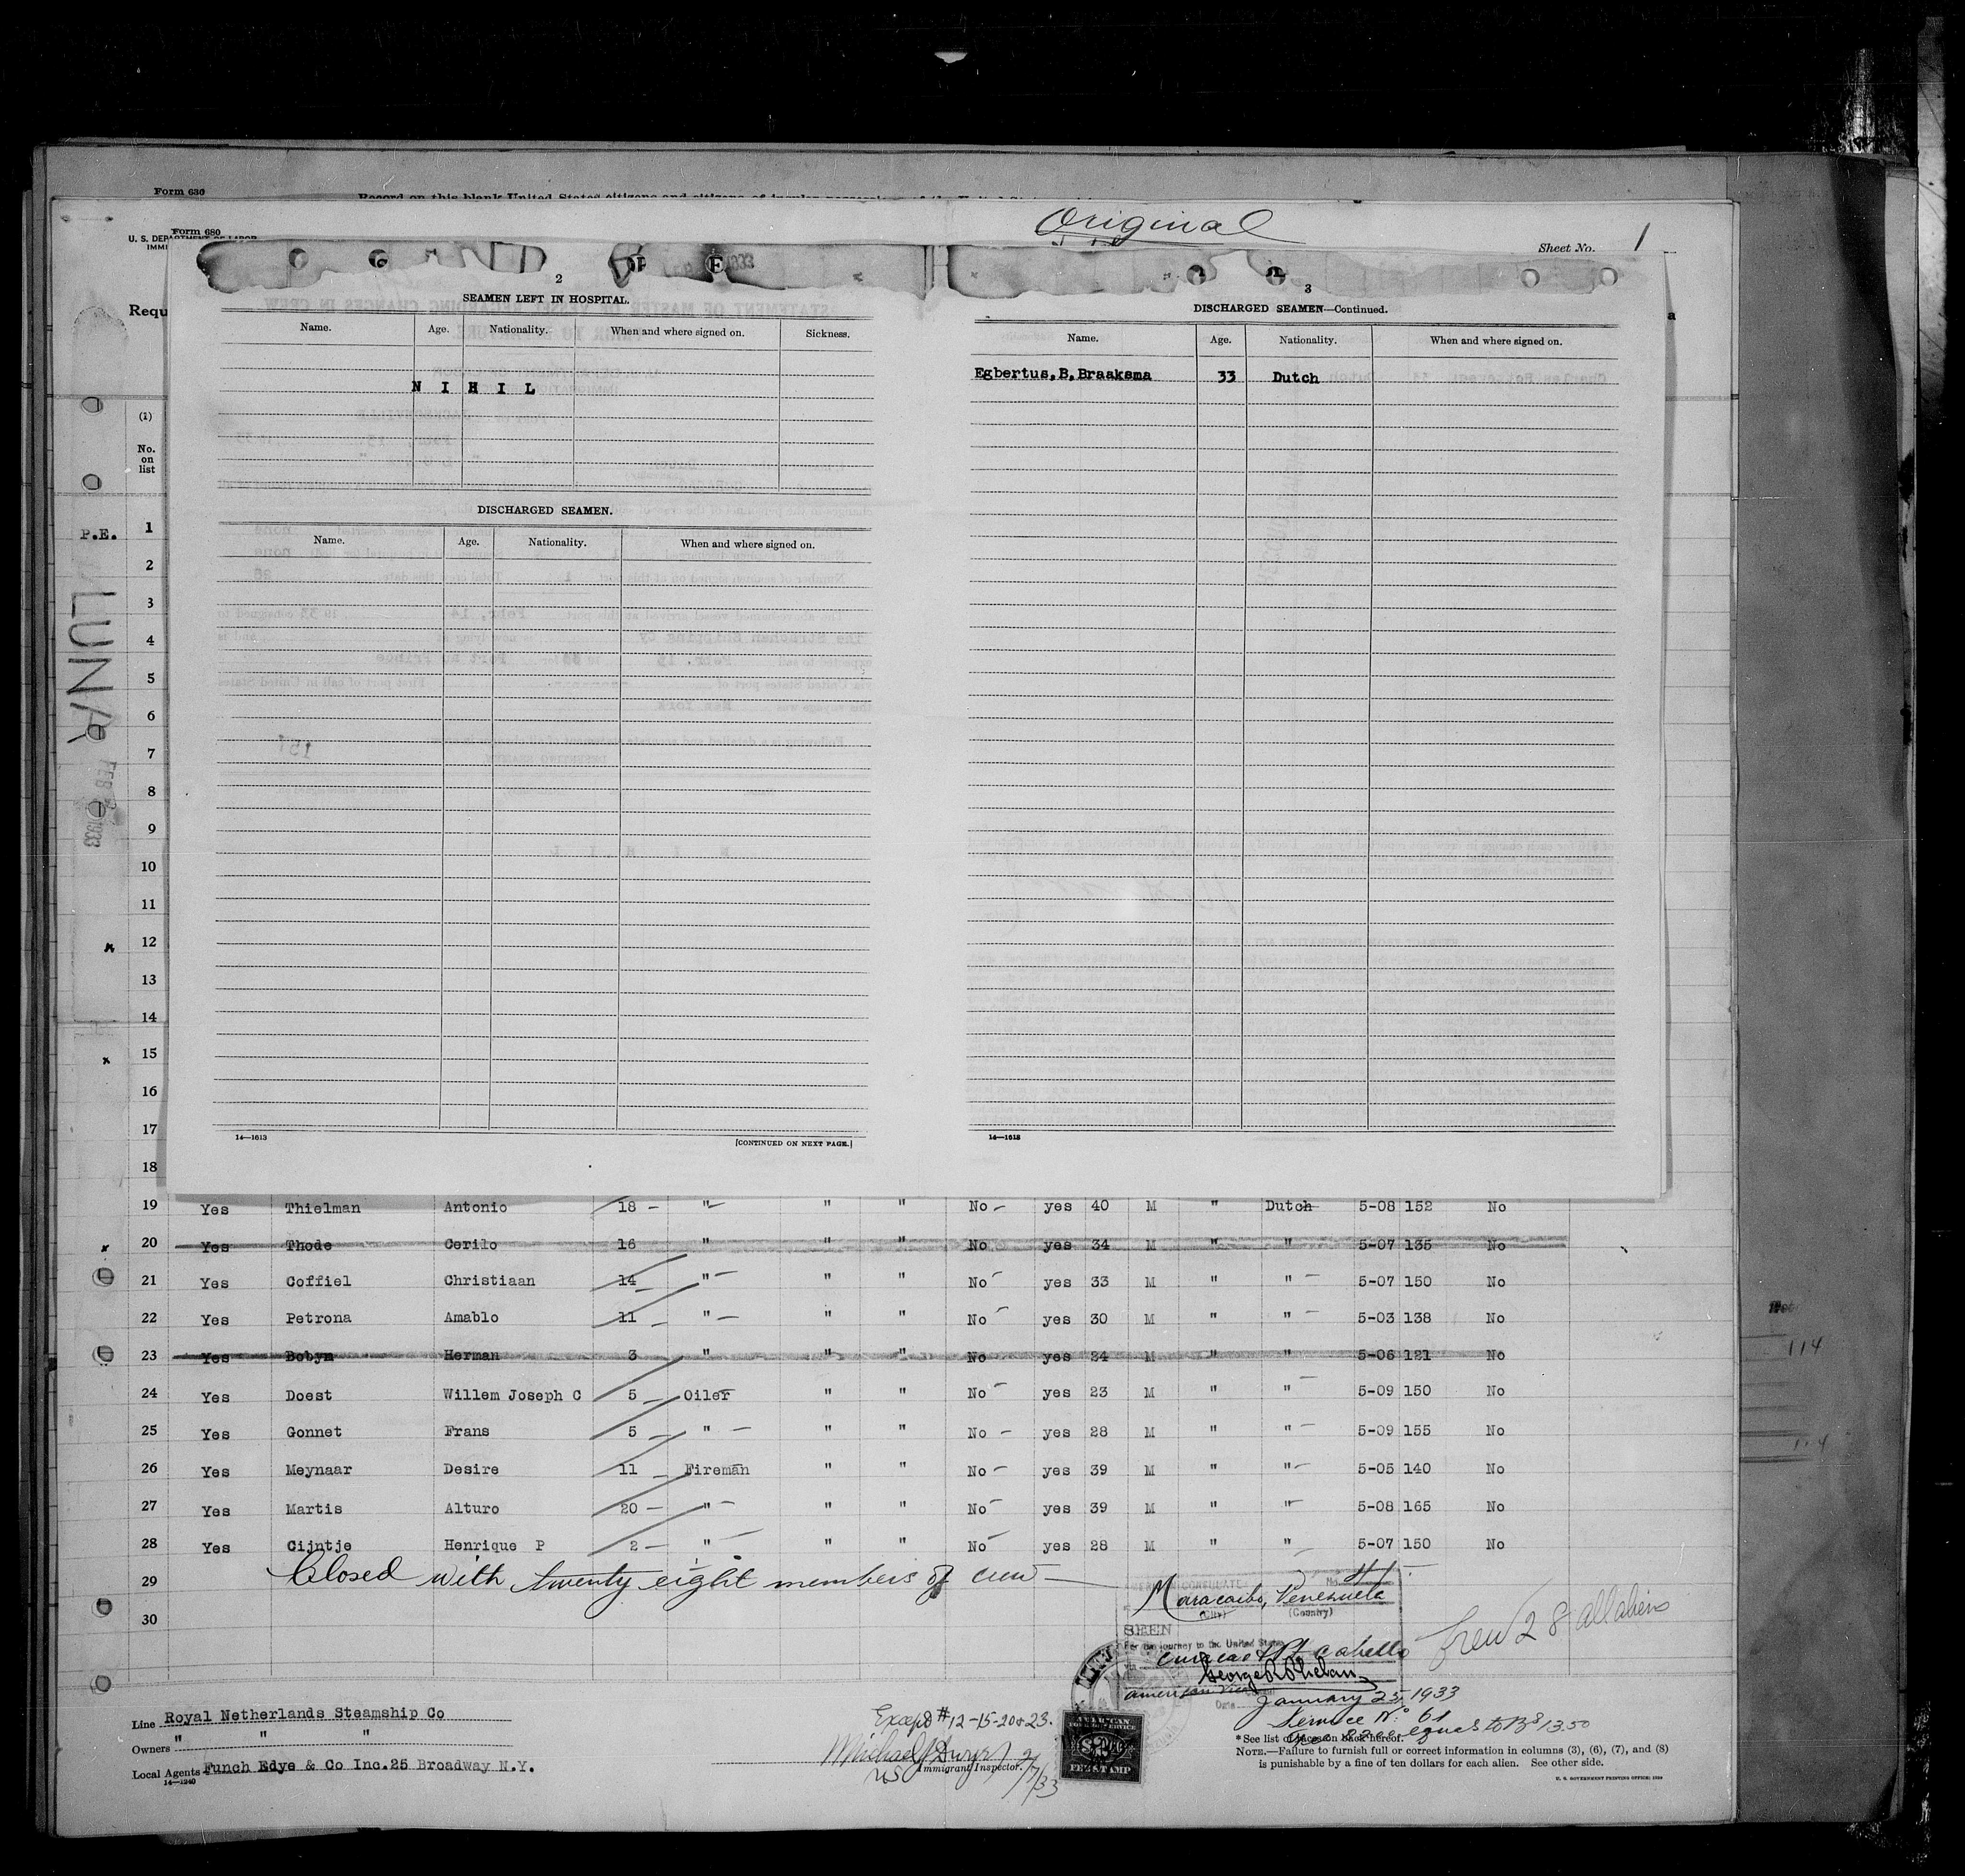 Form 630
Form 680
U. S. DEPARTMENT OF LABOR
Original
Sheet No. 1
Requ
2
SEAMEN LEFT IN HOSPITAL.
Name. Age. Nationality. When and where signed on. Sickness.
N I H I L
DISCHARGED SEAMEN.
Name. Age. Nationality. When and where signed on.
14—1613
[CONTINUED ON NEXT PAGE.]
3
DISCHARGED SEAMEN—Continued.
Name. Age. Nationality. When and where signed on.
Egbertus,B,Braaksma 33 Dutch
14—1613
(1)
No. on list
P.E.
LUNA
FEB 1933
1
2
3
4
5
6
7
8
9
10
11
12
13
14
15
16
17
18
19 Yes Thielman Antonio 18 " " " No yes 40 M " Dutch 5-08 152 No
20 Yes Thode Cerilo 16 " " " No yes 34 M " " 5-07 135 No
21 Yes Coffiel Christiaan 14 " " " No yes 33 M " " 5-07 150 No
22 Yes Petrona Amablo 11 " " " No yes 30 M " " 5-03 138 No
23 Yes Bobyn Herman 3 " " " No yes 24 M " " 5-06 121 No
24 Yes Doest Willem Joseph C 5 Oiler " " No yes 23 M " " 5-09 150 No
25 Yes Gonnet Frans 5 " " " No yes 28 M " " 5-09 155 No
26 Yes Meynaar Desire 11 Fireman " " No yes 39 M " " 5-05 140 No
27 Yes Martis Alturo 20 " " " No yes 39 M " " 5-08 165 No
28 Yes Cijntje Henrique P 2 " " " No yes 28 M " " 5-07 150 No
29 Closed with twenty eight members of crew
30
Maracaibo, Venezuela
(City) (Country)
SEEN
For the journey to the United States
Curacao & Pt. Cabello
George R Phelan
American Vice
January 25, 1933
Service No. 61
equal to Bs 13.50
Crew 28 all aliens
114
114
Line Royal Netherlands Steamship Co
Owners " "
Local Agents Funch Edye & Co Inc.25 Broadway N.Y.
14—1240
Except # 12-15-20 & 23.
Michael J Dwyer
US Immigrant Inspector.
2/7/33
AMERICAN
FOREIGN SERVICE
FEE STAMP
*See list of races on back hereof.
NOTE.—Failure to furnish full or correct information in columns (3), (6), (7), and (8)
is punishable by a fine of ten dollars for each alien. See other side.
U. S. GOVERNMENT PRINTING OFFICE: